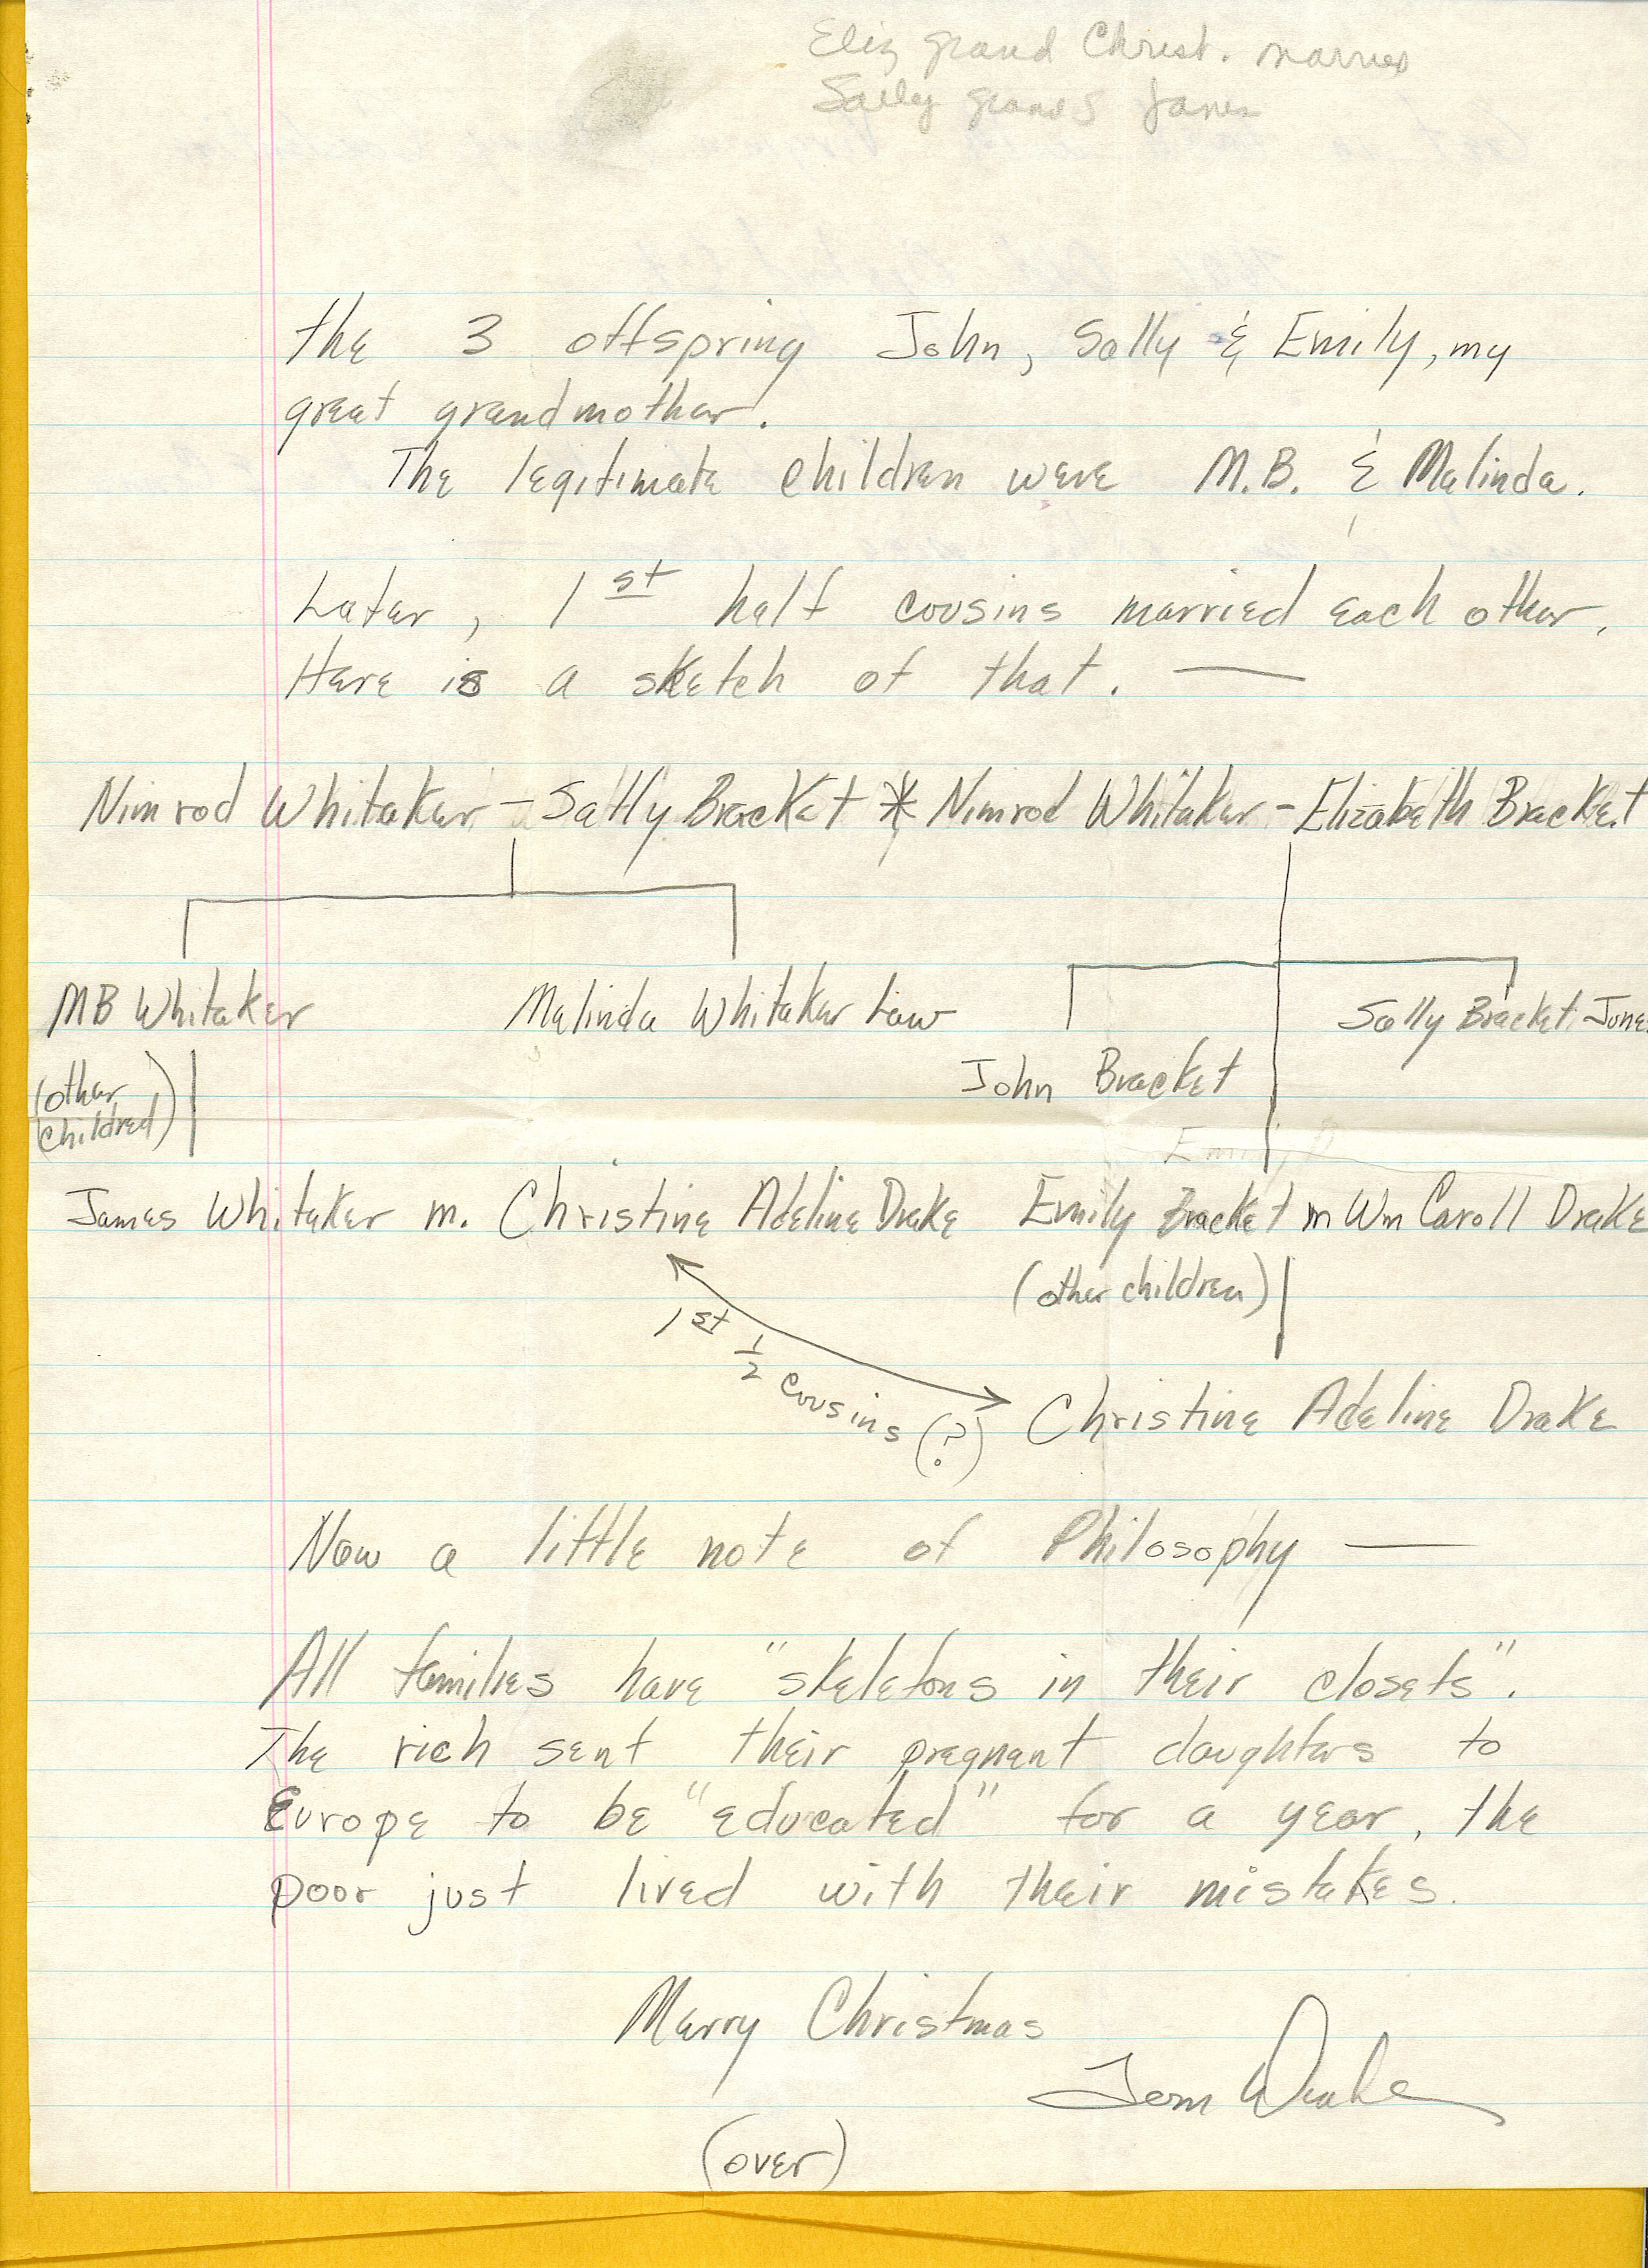 Eliz grand Christ. married
Sally grand James
the 3 offspring John, Sally & Emily, my
great grandmother.
The legitimate children were M.B. & Malinda.
Later, 1st half cousins married each other.
Here is a sketch of that. —
Nimrod Whitaker - Sally Bracket * Nimrod Whitaker - Elizabeth Bracket
MB Whitaker Malinda Whitaker Law Sally Bracket Jone
John Bracket
(other
children)
Emily B
James Whitaker m. Christine Adeline Drake Emily Bracket m Wm Caroll Drake
(other children)
1st 1/2 cousins (?)
Christine Adeline Drake
Now a little note of Philosophy —
All families have "skeletons in their closets".
The rich sent their pregnant daughters to
Europe to be "educated" for a year, the
poor just lived with their mistakes.
Merry Christmas
Tom Drake
(over)